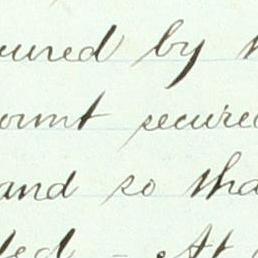 cured by
ount secured
and so tha
ded - At